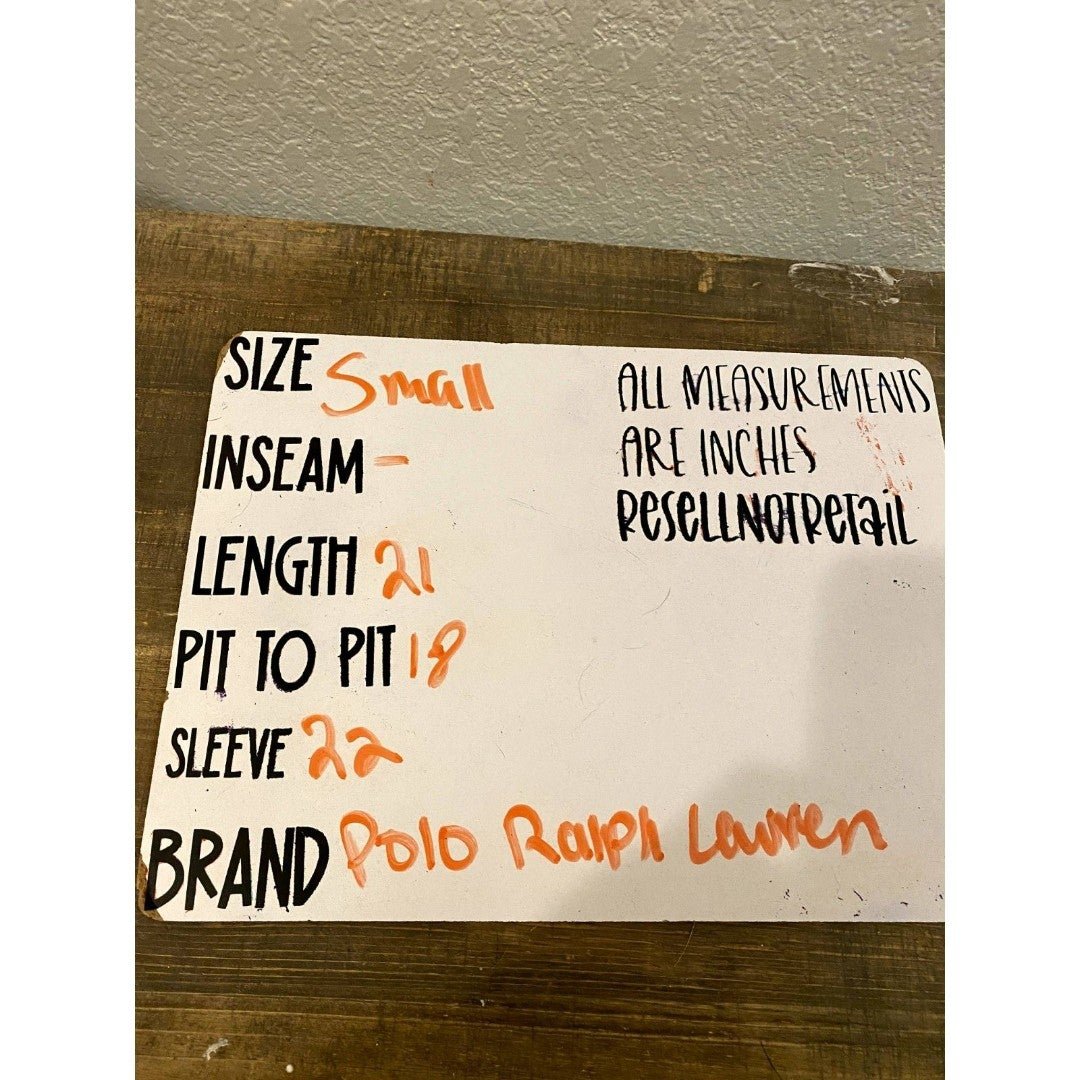 SIZE Small
INSEAM -
LENGTH 21
PIT TO PIT 18
SLEEVE 22
BRAND Polo Ralph Lauren
ALL MEASUREMENTS
ARE INCHES
RESELLNOTRETAIL